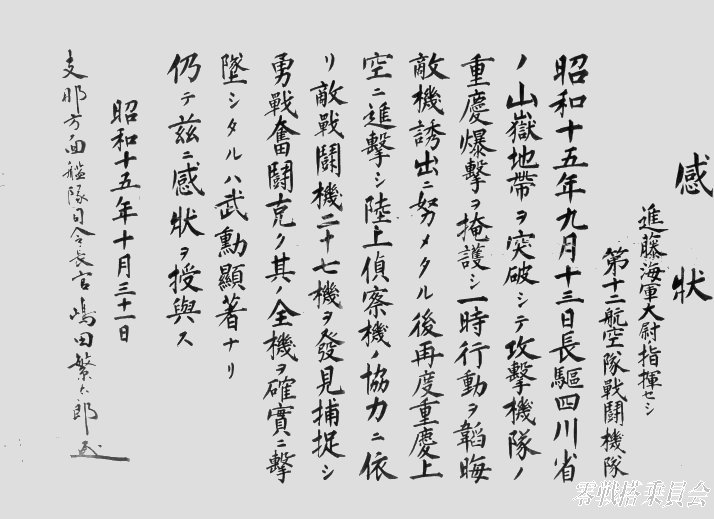 感狀
進藤海軍大尉指揮セシ
第十二航空隊戰鬪機隊
昭和十五年九月十三日長驅四川省
ノ山嶽地帶ヲ突破シテ攻擊機隊ノ
重慶爆擊ヲ掩護シ一時行動ヲ韜晦
敵機誘出ニ努メタル後再度重慶上
空ニ進擊シ陸上偵察機ノ協力ニ依
リ敵戰鬪機二十七機ヲ發見捕捉シ
勇戰奮鬪克ク其ノ全機ヲ確實ニ擊
墜シタルハ武勳顯著ナリ
仍テ茲ニ感狀ヲ授與ス
昭和十五年十月三十一日
支那方面艦隊司令長官嶋田繁太郎
零戦搭乗員会